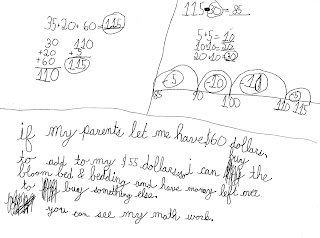 35+20+60=115
30 110
+20 +5
+60 115
110
115-30=85
5+5=10
10+10=20
20+10=30
-5 -10 -10 -5
85 90 100 110 115
if my parents let me have $60 dollars,
to add to my $55 dollars, i can buy the
bloom bed & bedding and have money left over
to buy something else.
you can see my math work.